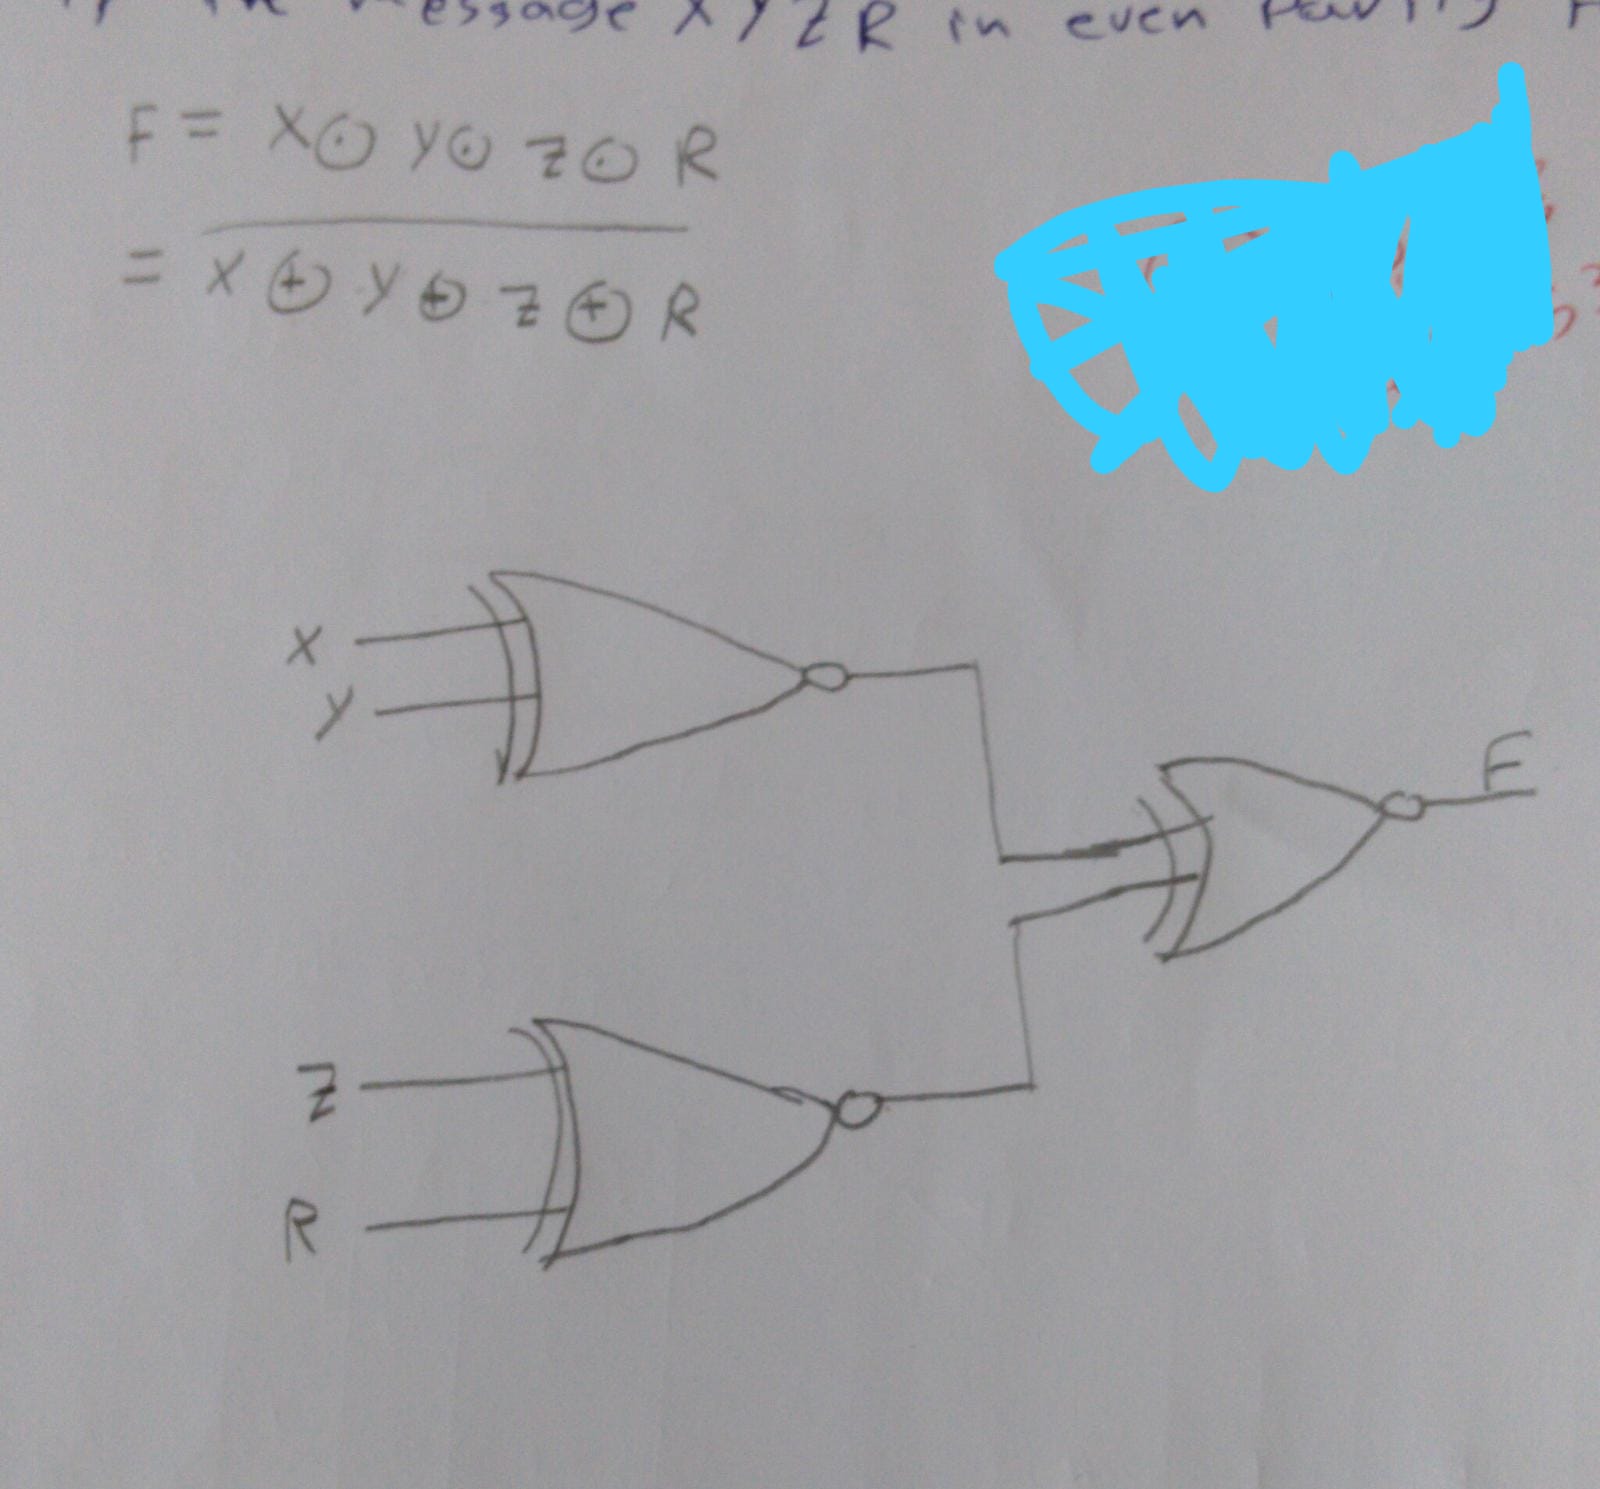 the message X Y Z R in even parity
F = X ⊙ Y ⊙ Z ⊙ R
= X ⊕ Y ⊕ Z ⊕ R
X
Y
F
Z
R